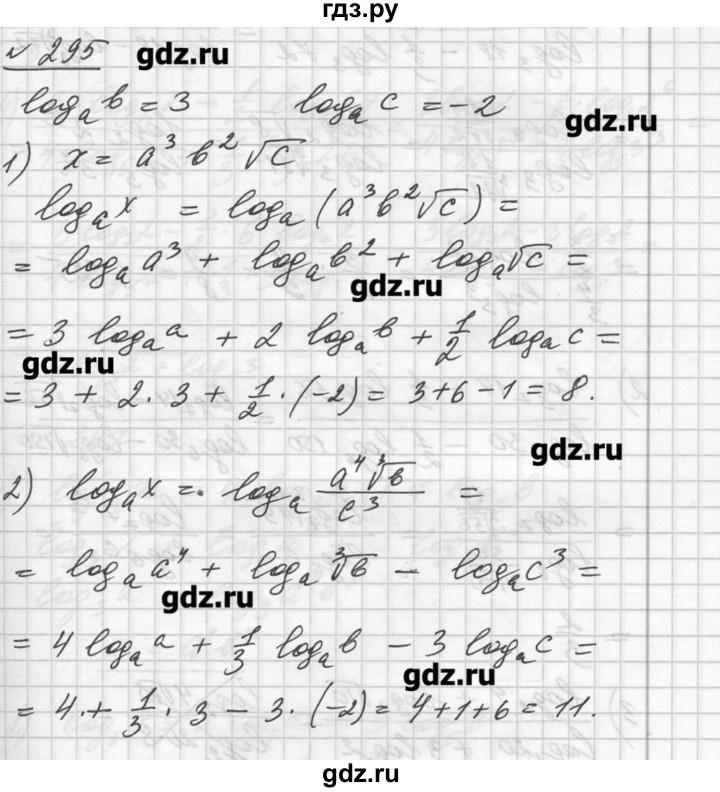 гдз.ру
№ 295 gdz.ru
log_a b = 3 log_a c = -2 gdz.ru
1) x = a³ b² √c
log_a x = log_a (a³b²√c) =
= log_a a³ + log_a b² + log_a √c =
gdz.ru
= 3 log_a a + 2 log_a b + 1/2 log_a c =
gdz.ru
= 3 + 2·3 + 1/2·(-2) = 3+6-1 = 8.
gdz.ru
2) log_a x = log_a (a⁴ ∛b)/c³ =
= log_a a⁴ + log_a ∛b - log_a c³ =
gdz.ru
= 4 log_a a + 1/3 log_a b - 3 log_a c =
gdz.ru
= 4·+ 1/3 · 3 - 3·(-2) = 4+1+6 = 11.
gdz.ru